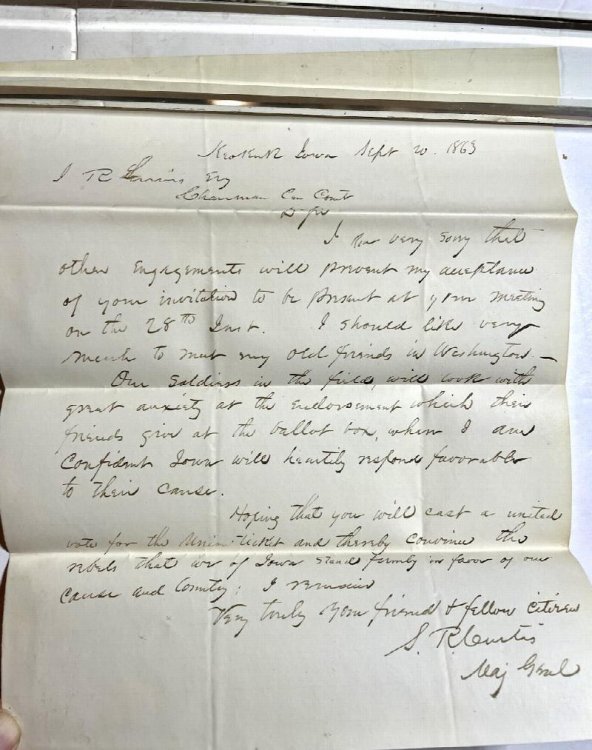 Keokuk Iowa Sept 20. 1863
J R Esq
Chairman Com
I am very sorry that
other Engagements will prevent my acceptance
of your invitation to be present at your meeting
on the 28th Inst. I should like very
much to meet my old friends in Washington. —
Our Soldiers in the field, will look with
great anxiety at the endorsement which their
friends give at the ballot box, where I am
Confident Iowa will heartily respond favorable
to their cause.
Hoping that you will cast a united
vote for the Union-ticket and thereby convince the
rebels that we of Iowa stand firmly in favor of our
cause and Country; I remain
Very truly your friend & fellow citizen
S. R. Curtis
Maj Genl